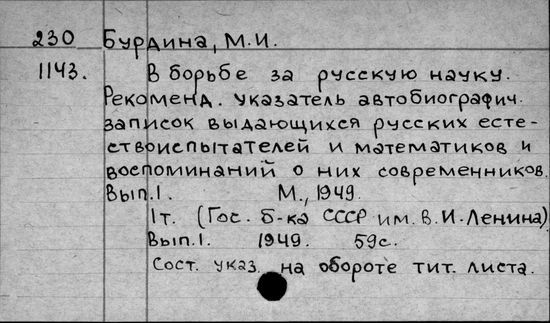 230 Бурдина, М.И.
1143. В борьбе за русскую науку.
Рекоменд. указатель автобиографич.
записок выдающихся русских есте-
ствоиспытателей и математиков и
воспоминаний о них современников.
Вып.1. М., 1949.
1т. (Гос. б-ка СССР им. В.И.Ленина)
Вып.1. 1949. 59с.
Сост. указ. на обороте тит. листа.